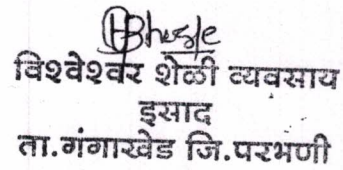 विश्वेश्वर शेळी व्यवसाय
इसाद
ता.गंगाखेड जि.परभणी